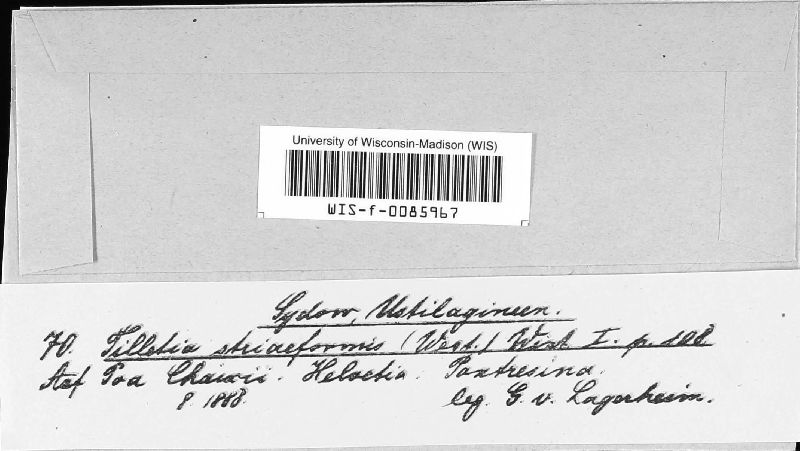 University of Wisconsin-Madison (WIS)
WIS-f-0085967
Sydow, Ustilagineen.
70. Tilletia striaeformis (West.) Wint I. p. 108.
Auf Poa Chaixii. Helvetia. Pontresina.
8. 1888. leg. G. v. Lagerheim.